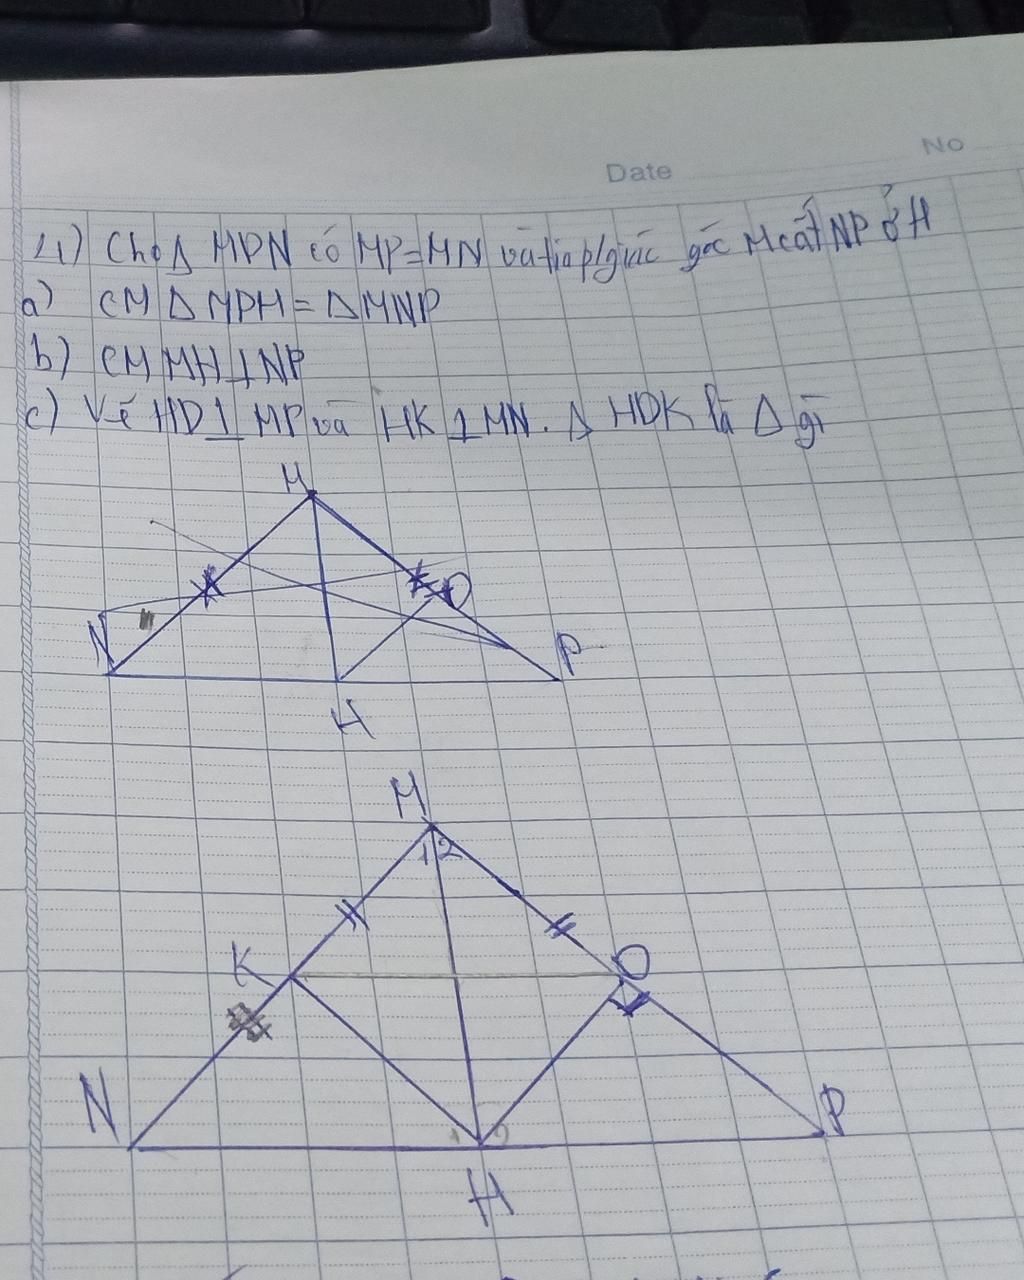 Date
No
4) Cho Δ MPN có MP=MN và tia p/giác góc M cắt NP ở H
a) CM Δ MPH = Δ MNP
b) CM MH ⊥ NP
c) Vẽ HD ⊥ MP và HK ⊥ MN. Δ HDK là Δ gì
M
D
N
P
H
M
1 2
K
D
N
P
1 2
H